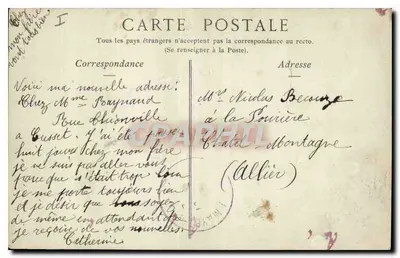 Chez
mon frère
I
CARTE POSTALE
Tous les pays étrangers n'acceptent pas la correspondance au recto.
(Se renseigner à la Poste).
Correspondance
Adresse
Voici ma nouvelle adresse:
Chez Mme Raynard
Rue Thionville
a Cusset. J'ai été
huit jours chez mon frère
je ne suis pas aller vous
parce que s'était trop loin
je me porte toujours bien
et je désire que vous soyez
de même en attendant
je reçoive de vos nouvelles
Catherine
Mr Nicolas
à la Poivrière
Chatel Montagne
(Allier)